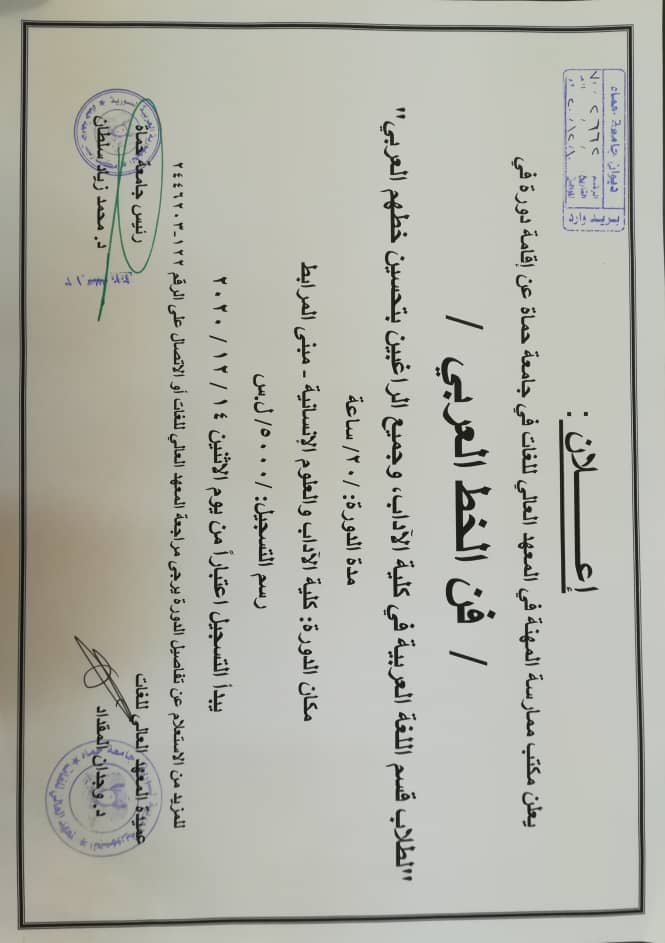 ديوان جامعة حماه
الرقم
التاريخ
بريد وارد
إعــــلان :
يعلن مكتب ممارسة المهنة في المعهد العالي للغات في جامعة حماة عن إقامة دورة في
/ فن الخط العربي /
"لطلاب قسم اللغة العربية في كلية الآداب، وجميع الراغبين بتحسين خطهم العربي"
مدة الدورة: /٢٠/ ساعة
مكان الدورة: كلية الآداب والعلوم الإنسانية - مبنى المرابط
رسم التسجيل: /٥٠٠٠/ ل.س
يبدأ التسجيل اعتباراً من يوم الاثنين ١٤ / ١٢ / ٢٠٢٠
للمزيد من الاستعلام عن تفاصيل الدورة يرجى مراجعة المعهد العالي للغات أو الاتصال على الرقم ١٢٢-٢٤٤٦٢٠٣
عميدة المعهد العالي للغات
د. وجدان المقداد
رئيس جامعة حماة
د. محمد زياد سلطان